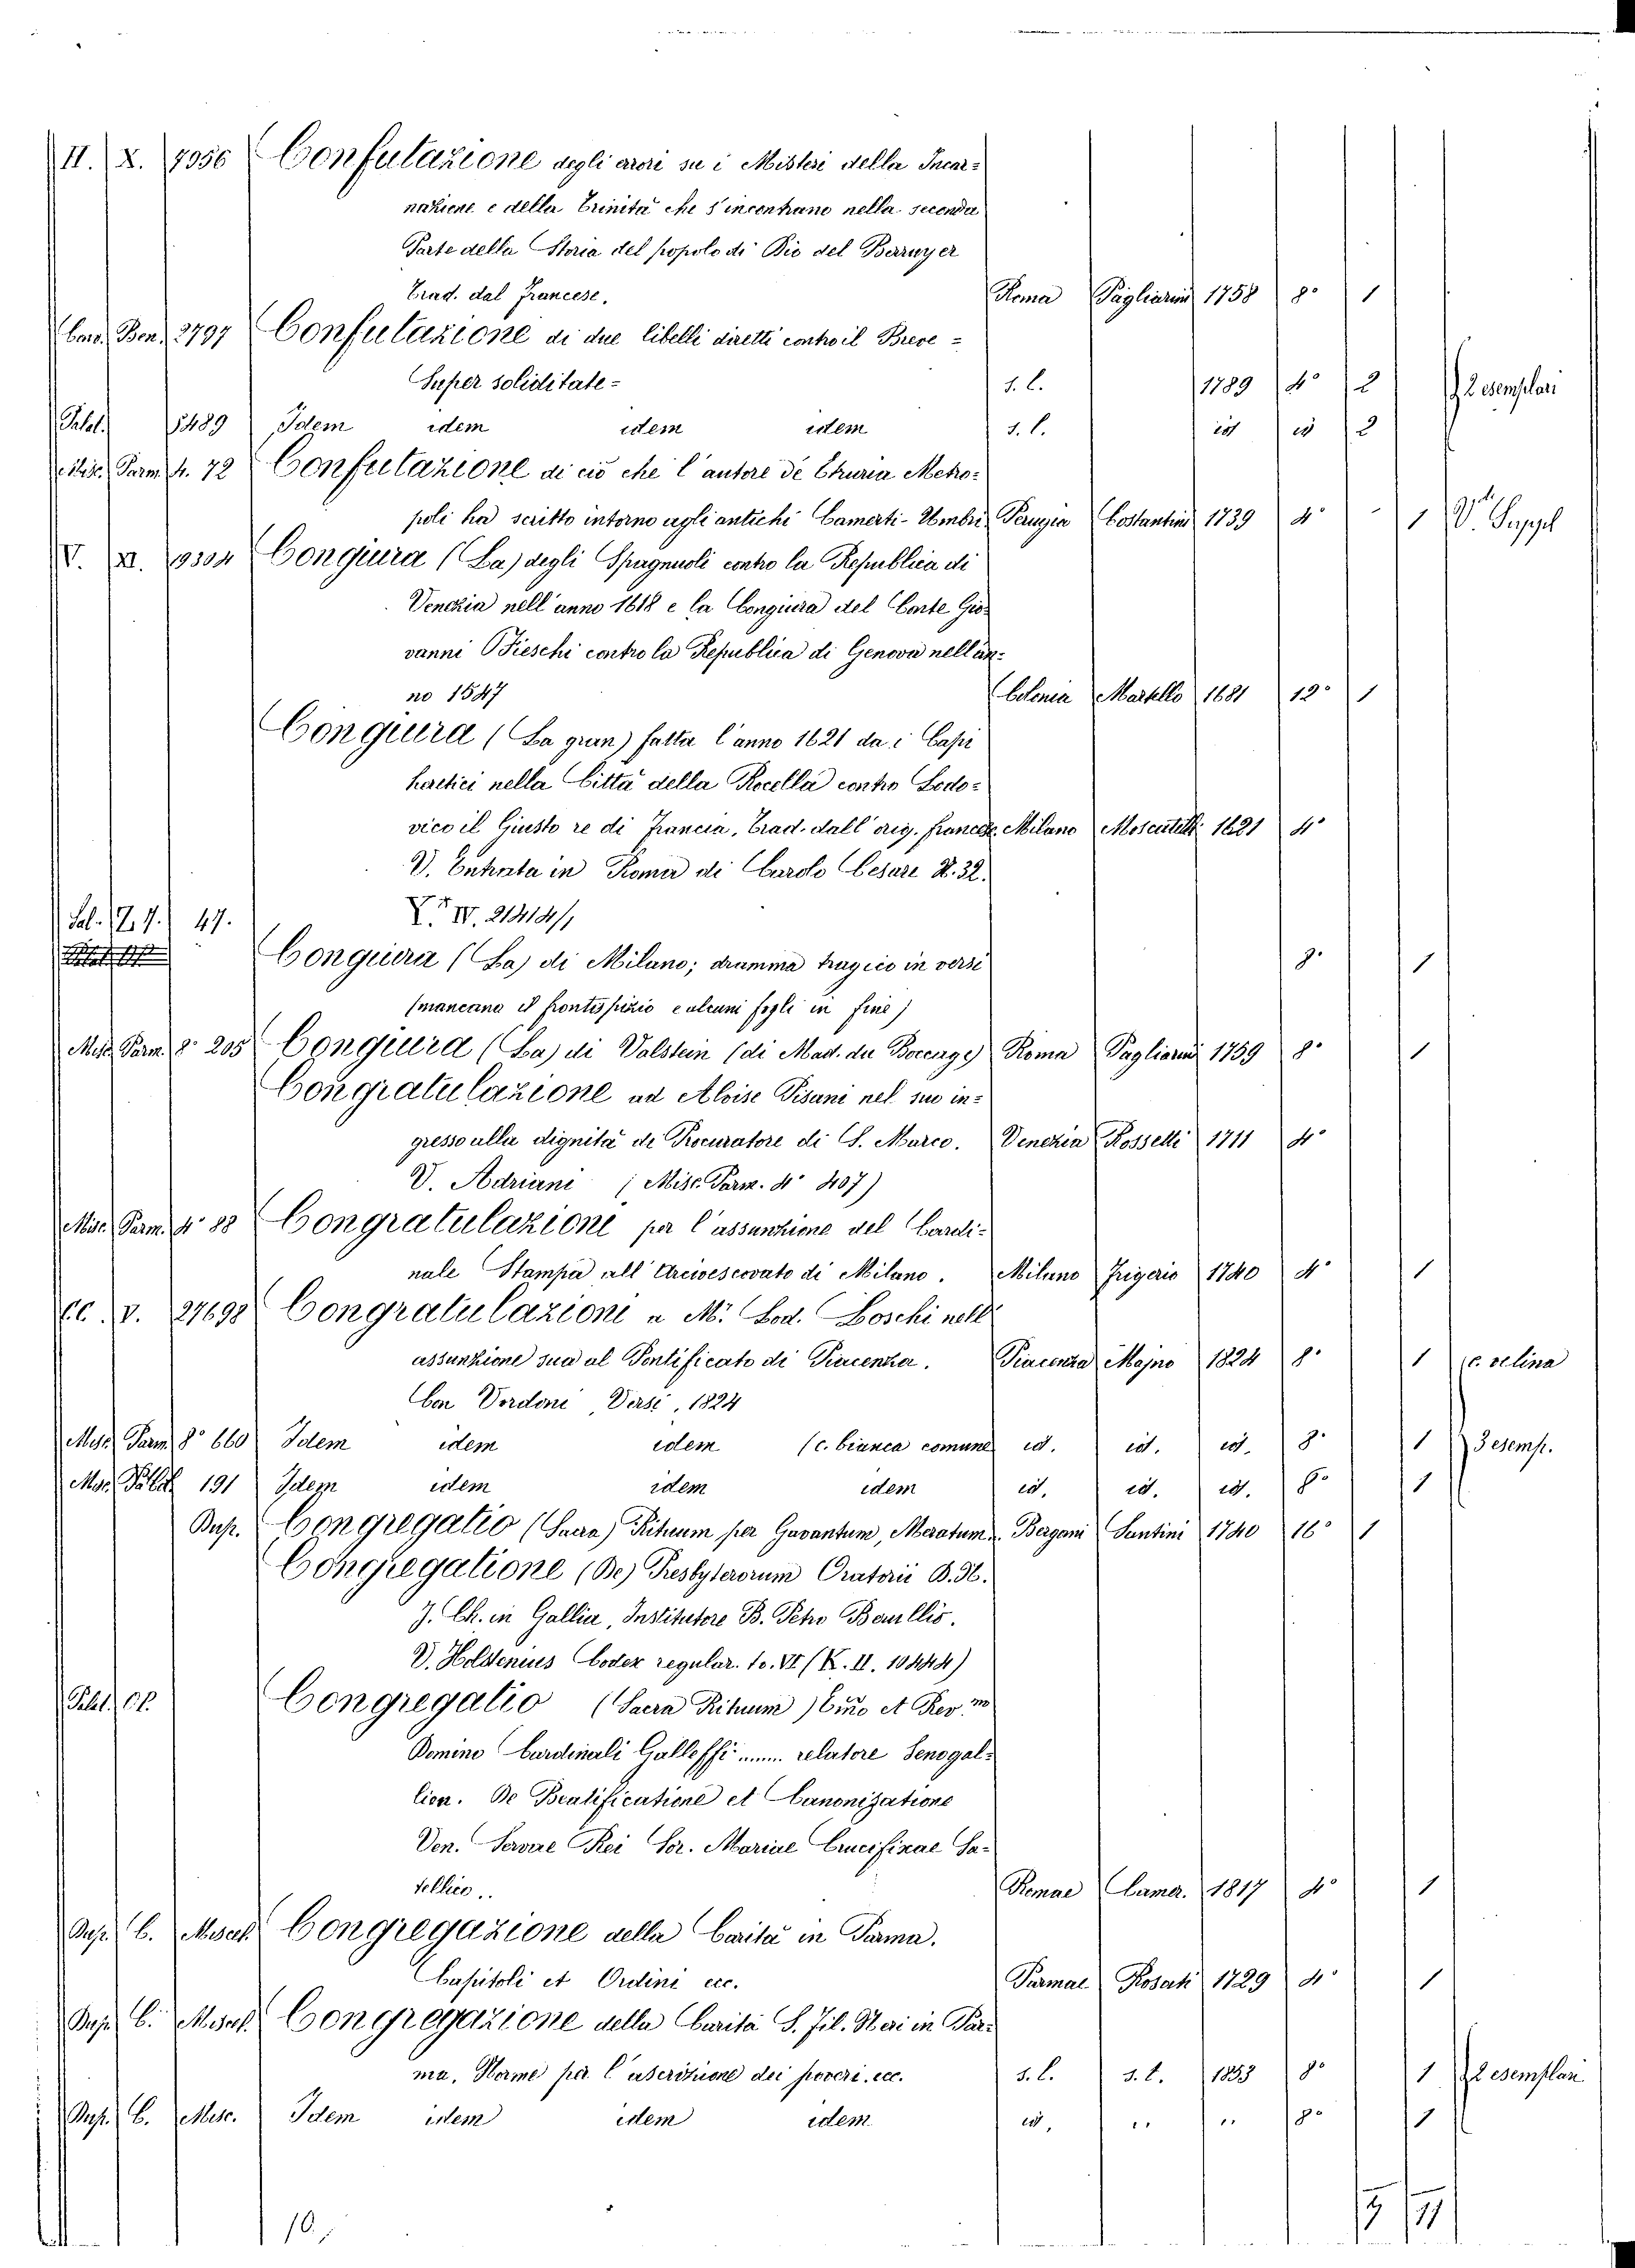 II. X. 7956 Confutazione degli errori su i Misteri della Incar=
nazione e della Trinità che s'incontrano nella seconda
Parte della Storia del popolo di Dio del Berruyer
Trad. dal francese. Roma Pagliarini 1758 8° 1
Ben. 2797 Confutazione di due libelli diretti contro il Breve =
Super soliditate = s. l. 1789 4° 2 2 esemplari
Palat. 5489 Idem idem idem idem s. l. id id 2
Misc. Parm. 4. 72 Confutazione di ciò che l'autore de Etruria Metro=
poli ha scritto intorno agli antichi Camerti-Umbri Perugia Costantini 1739 4° 1 V. Suppl
V. XI. 9304 Congiura (La) degli Spagnuoli contro la Republica di
Venezia nell'anno 1618 e la Congiura del Conte Gio=
vanni Fieschi contro la Republica di Genova nell'an=
no 1547 Colonia Martello 1681 12° 1
Congiura (La gran) fatta l'anno 1621 da i Capi
heretici nella Città della Rocella contro Lodo=
vico il Giusto re di Francia, Trad. dall'orig. francese. Milano Moscatelli 1621 4°
V. Entrata in Roma di Carolo Cesare N. 32.
IV. 21414/1
Sal. 47.
Congiura (La) di Milano; dramma tragico in versi 8. 1
(mancano il frontispizio e alcuni fogli in fine)
Misc. Parm. 8° 205 Congiura (La) di Valstein (di Mad. du Boccage) Roma Pagliarini 1759 8° 1
Congratulazione ad Aloise Pisani nel suo in=
gresso alla dignità di Procuratore di S. Marco. Venezia Rossetti 1711 4°
V. Adriani (Misc. Parm. 4° 407)
Misc. Parm. 4° 88 Congratulazioni per l'assunzione del Cardi=
nale Stampa all'Arcivescovato di Milano. Milano Frigerio 1740 4° 1
CC. V. 27698 Congratulazioni a Mr. Lod. Loschi nell'
assunzione sua al Pontificato di Piacenza. Piacenza Majno 1824 8° 1 c. velina
Con Verdoni, Versi, 1824
Misc. Parm. 8° 660 Idem idem idem (c. bianca comune) id. id. id. 8° 1 3 esemp.
Misc. Palat. 191 Idem idem idem idem id. id. id. 8° 1
Dup. Congregatio (Sacra) Rituum per Gavantum, Meratum. Bergami Santini 1740 16° 1
Congregatione (De) Presbyterorum Oratorii D. N.
J. Ch. in Gallia, Institutore B. Petro Berullio.
V. Holstenius Codex regular. to. VI (K. II. 10444)
Palat. Congregatio (Sacra Rituum) Emo et Rev.mo
Domino Cardinali Galleffi relatore Senogal=
lien. De Beatificatione et Canonizatione
Ven. Servae Dei Sor. Mariae Crucifixae Sa=
tellico.. Romae Camer. 1817 4° 1
Dup. C. Misc. Congregazione della Carità in Parma.
Capitoli et Ordini ecc. Parmae Rosati 1729 4° 1
Dup. C. Misc. Congregazione della Carità S. Fil. Neri in Par=
ma. Norme per l'ascrizione dei poveri. ecc. s. l. s. t. 1853 8° 1 2 esemplari
Dup. C. Misc. Idem idem idem idem id. .. .. 8° 1
10.